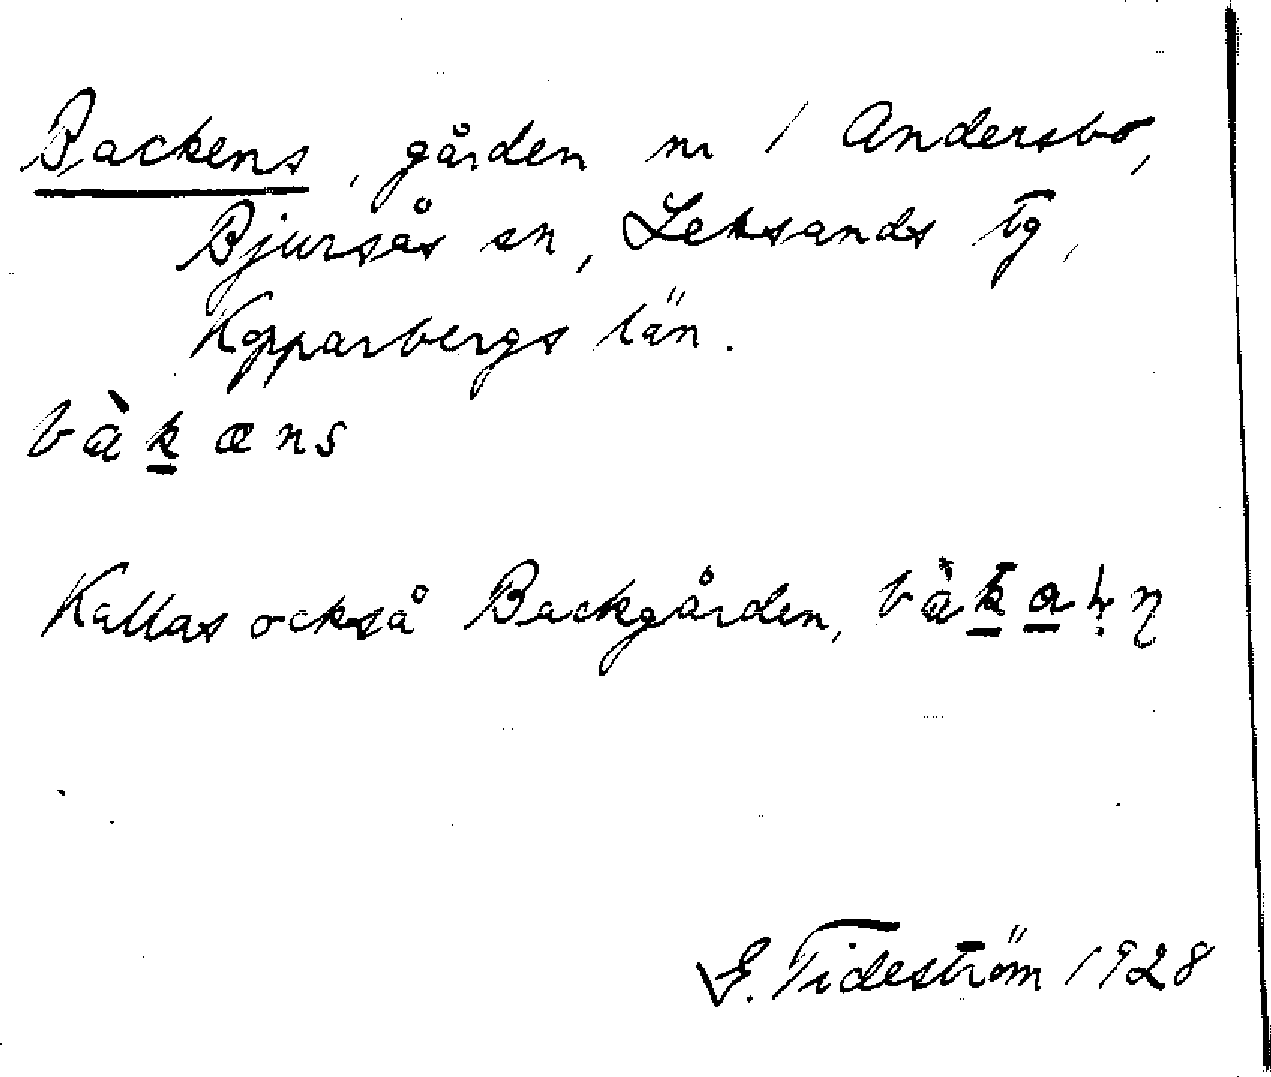 Backens, gården nr 1 Andersbo,
Bjursås sn, Leksands tg,
Kopparbergs län.
bàkæns
Kallas också Backgården, bàka
G. Tideström 1928